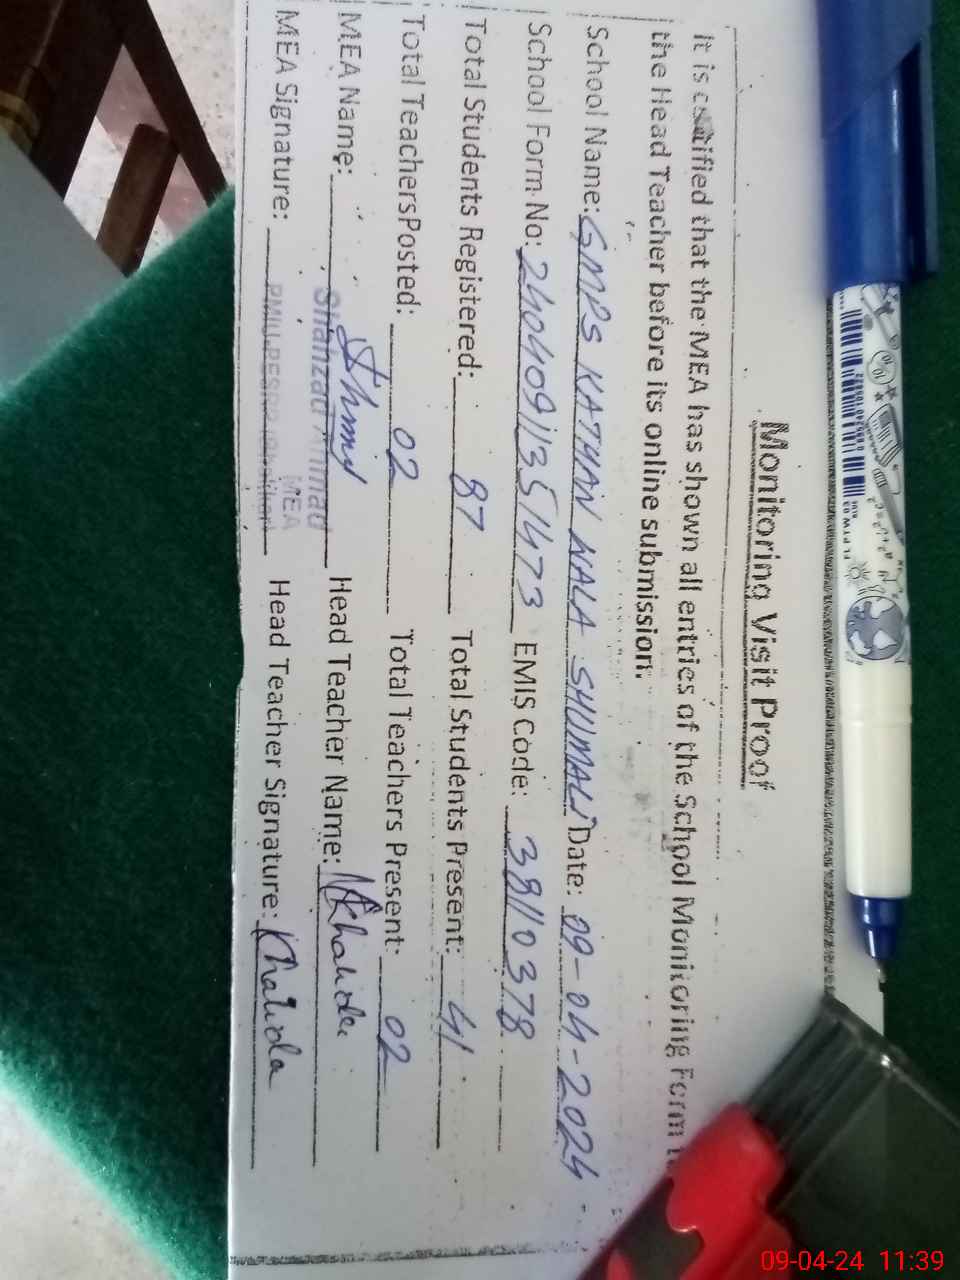 Monitoring Visit Proof
It is certified that the MEA has shown all entries of the School Monitoring Form to
the Head Teacher before its online submission.
School Name: GMPS KATHAN NALA SHUMALI Date: 09-04-2024
School Form No: 24040911351473 EMIS Code: 38110378
Total Students Registered: 87 Total Students Present: 41
Total TeachersPosted: 02 Total Teachers Present: 02
MEA Name: Shahzad Ahmad Head Teacher Name: Khalida
MEA
MEA Signature: Head Teacher Signature: Khalida
09-04-24 11:39